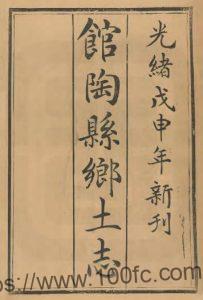 光緒戊申年新刊
館陶縣鄉土志
https://www.100fc.com